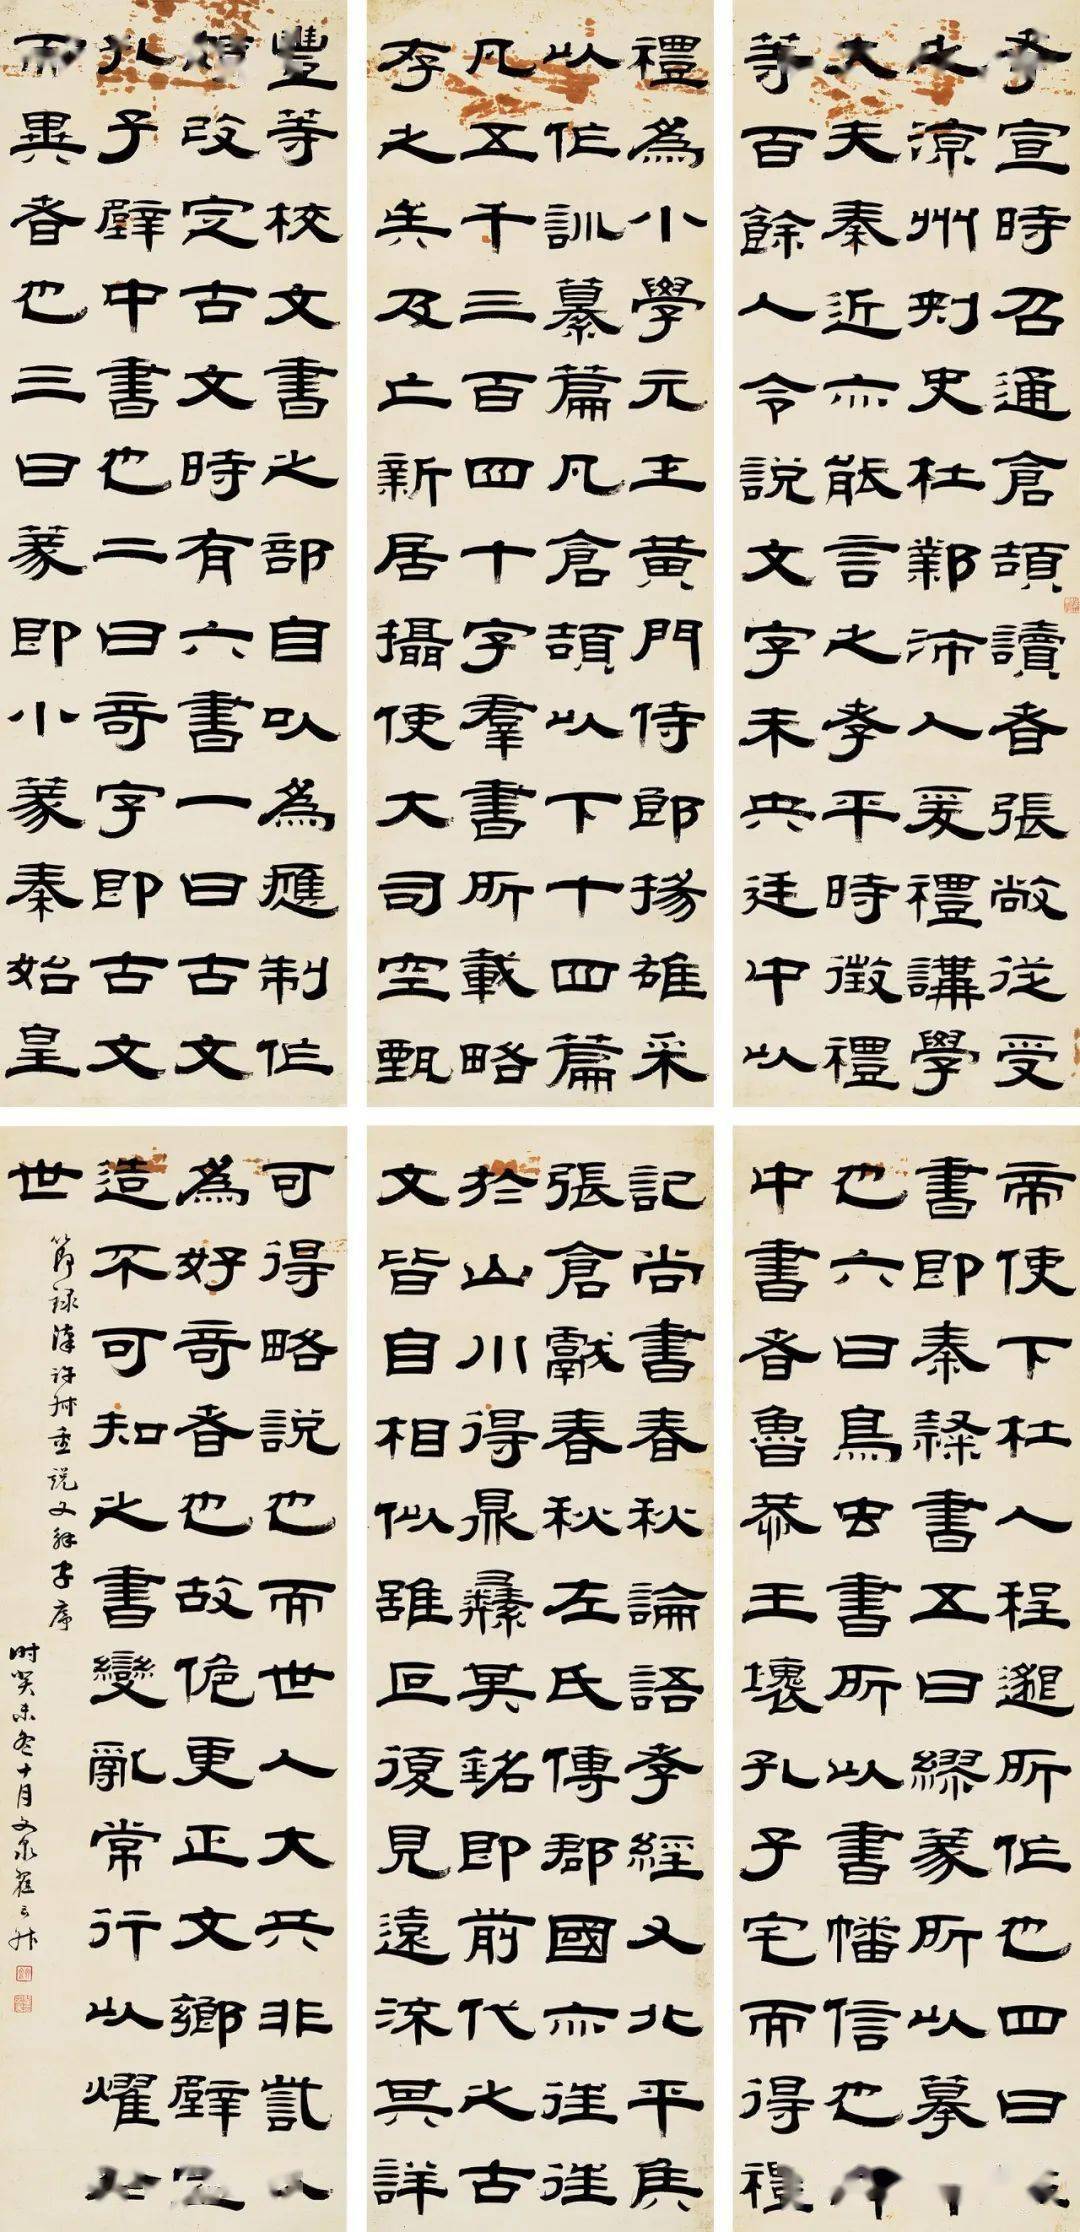 孝宣時召通倉頡讀者張敞從受
之涼州刺史杜鄴沛人爰禮講學
大夫秦近亦能言之孝平時徵禮
等百餘人令說文字未央廷中以
禮為小學元士黃門侍郎揚雄采
以作訓纂篇凡倉頡以下十四篇
凡五千三百四十字羣書所載略
存之矣及亡新居攝使大司空甄
豐等校文書之部自以為應制作
頗改定古文時有六書一曰古文
孔子壁中書也二曰奇字即古文
而異者也三曰篆即小篆秦始皇
帝使下杜人程邈所作也四曰
書即秦隸書五曰繆篆所以摹
也六曰鳥虫書所以書幡信也
中書者魯恭王壞孔子宅而得禮
記尚書春秋論語孝經又北平侯
張倉獻春秋左氏傳郡國亦往往
於山川得鼎彝其銘即前代之古
文皆自相似雖叵復見遠流其詳
可得略說也而世人大共非訾
為好奇者也故詭更正文鄉壁虛
造不可知之書變亂常行以燿於
世
節錄漢許叔重說文解字序
時癸未冬十月文泉